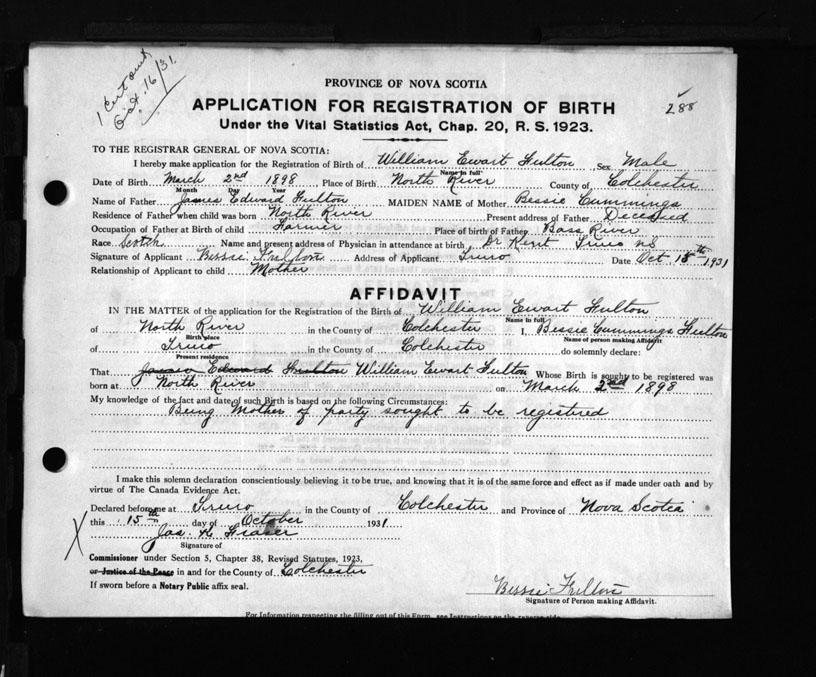 1 Cert out
Oct. 16/31.
288
PROVINCE OF NOVA SCOTIA
APPLICATION FOR REGISTRATION OF BIRTH
Under the Vital Statistics Act, Chap. 20, R. S. 1923.
TO THE REGISTRAR GENERAL OF NOVA SCOTIA:
I hereby make application for the Registration of Birth of William Ewart Fulton, Sex Male
Name in full
Date of Birth March 2nd 1898 Place of Birth North River County of Colchester
Month Day Year
Name of Father James Edward Fulton MAIDEN NAME of Mother Bessie Cummings
Residence of Father when child was born North River Present address of Father Deceased
Occupation of Father at Birth of child Farmer Place of birth of Father Bass River
Race Scotch Name and present address of Physician in attendance at birth Dr Kent Truro NS
Signature of Applicant Bessie Fulton Address of Applicant Truro Date Oct 15th 1931
Relationship of Applicant to child Mother
AFFIDAVIT
IN THE MATTER of the application for the Registration of the Birth of William Ewart Fulton
Name in full
of North River in the County of Colchester I, Bessie Cummings Fulton
Birth place Name of person making Affidavit
of Truro in the County of Colchester do solemnly declare:
Present residence
That James Edward Fulton William Ewart Fulton Whose Birth is sought to be registered was
born at North River on March 2nd 1898
My knowledge of the fact and date of such Birth is based on the following Circumstances:
Being Mother of party sought to be registered
I make this solemn declaration conscientiously believing it to be true, and knowing that it is of the same force and effect as if made under oath and by
virtue of The Canada Evidence Act.
Declared before me at Truro in the County of Colchester and Province of Nova Scotia
this 15th day of October 1931
X Jas. H Fraser
Signature of
Commissioner under Section 5, Chapter 38, Revised Statutes, 1923,
or Justice of the Peace in and for the County of Colchester
If sworn before a Notary Public affix seal.
Bessie Fulton
Signature of Person making Affidavit.
For Information respecting the filling out of this Form, see Instructions on the reverse side.